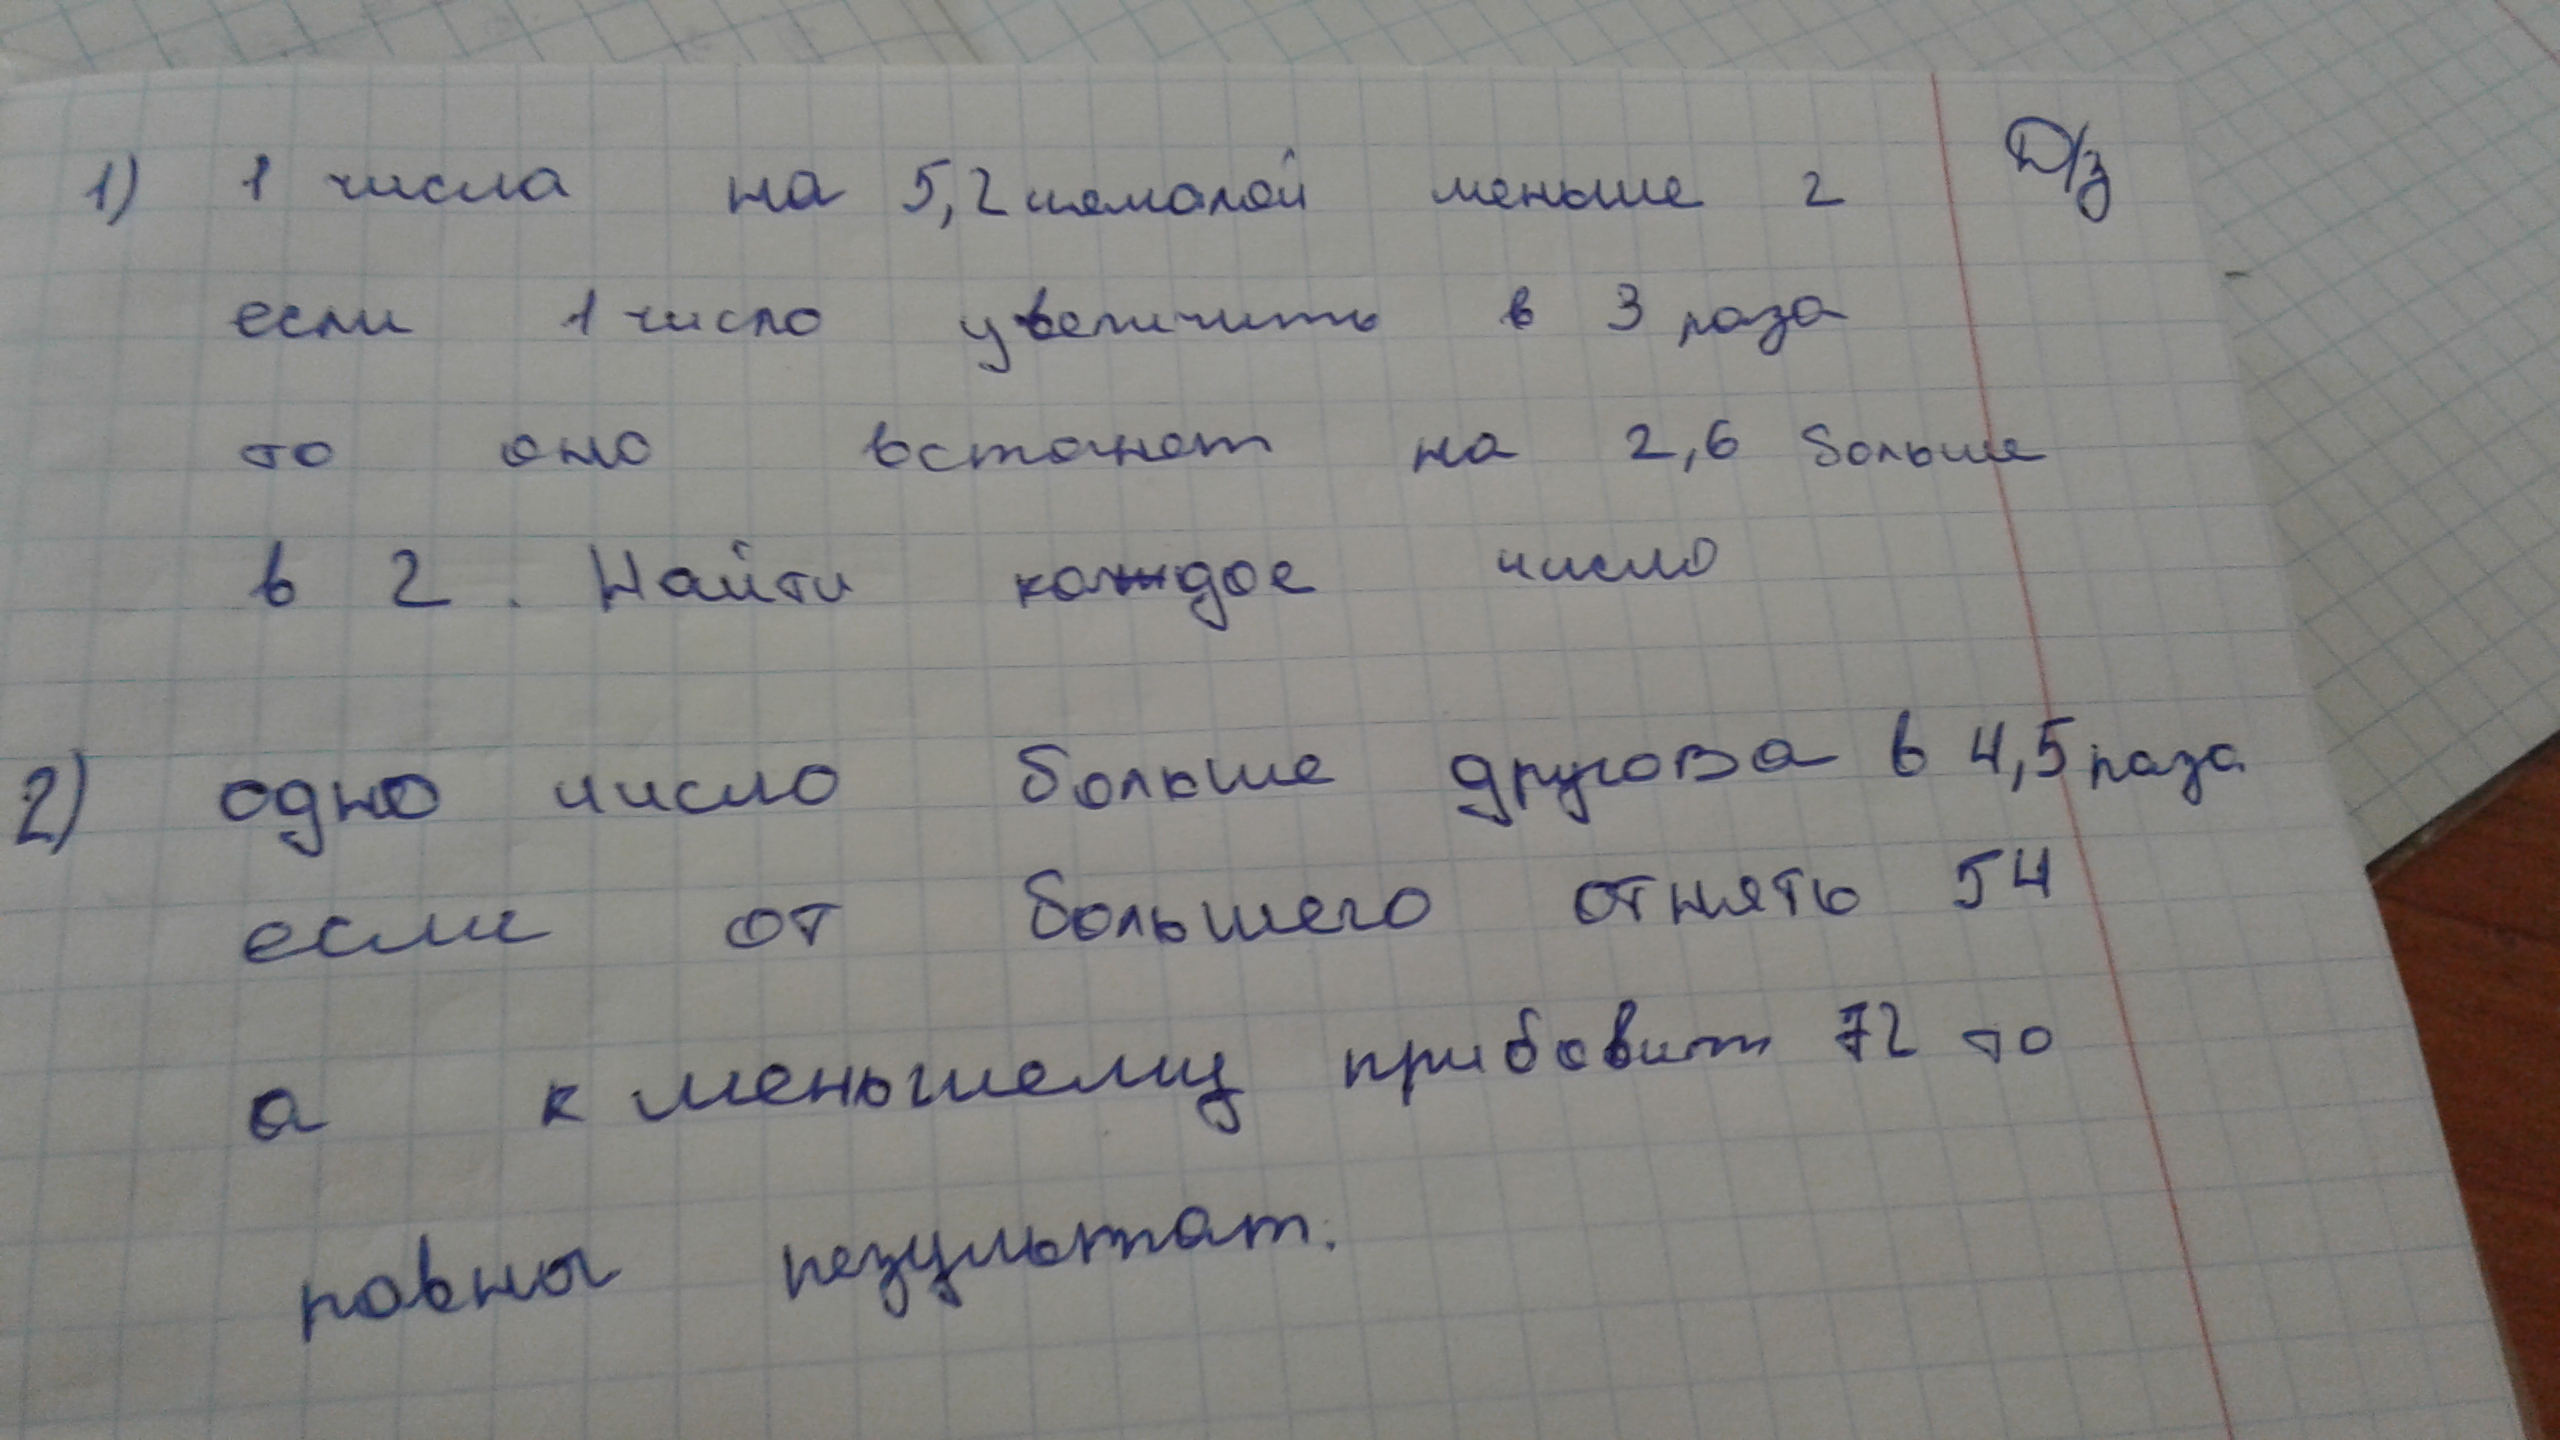 1) 1 числа на 5,2 меньше 2 Д/з
если 1 число увеличить в 3 раза
то оно встанет на 2,6 больше
в 2. Найти каждое число
2) одно число больше другова в 4,5 раза
если от большего отнять 54
а к меньшему прибавит 72 то
равны результат.